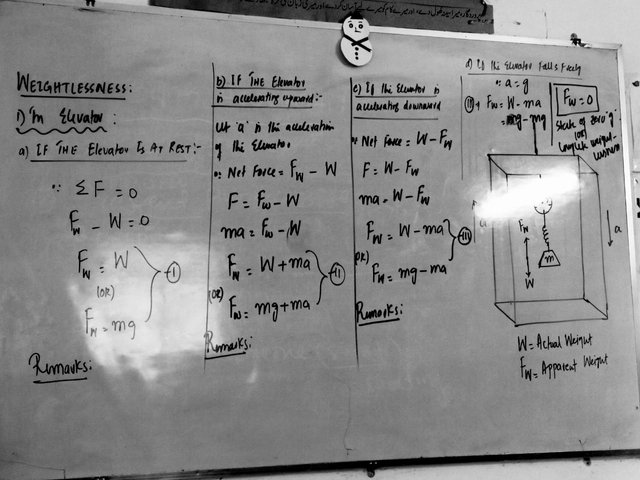 WEIGHTLESSNESS:
1) In Elevator:
a) IF THE Elevator Is At REST:
∵ ΣF = 0
Fw - W = 0
Fw = W
(OR)
Fw = mg
I
Remarks:
b) IF THE Elevator
is accelerating upward:-
Let 'a' is the acceleration
of the Elevator.
∵ Net Force = Fw - W
F = Fw - W
ma = Fw - W
Fw = W + ma
(OR)
Fw = mg + ma
II
Remarks:
c) If the Elevator is
accelerating downward
∵ Net Force = W - Fw
F = W - Fw
ma = W - Fw
Fw = W - ma
(OR)
Fw = mg - ma
III
Remarks:
d) If the Elevator Falls Freely
∵ a = g
Fw = W - ma
= mg - mg
Fw = 0
State of zero 'g'
(OR)
Complete weight-
lessness
a
Fw
m
W
W = Actual Weight
Fw = Apparent Weight